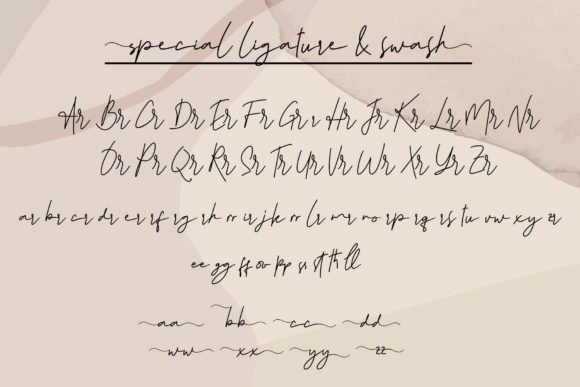 special ligature & swash
Ar Br Cr Dr Er Fr Gr Ir Hr Jr Kr Lr Mr Nr
Or Pr Qr Rr Sr Tr Ur Vr Wr Xr Yr Zr
ar br cr dr er rf rg rh rr ir jk rr lr mr no rp rq rs tu vw xy zr
ee gg ff oo pp ss tt th ll
aa bb cc dd
ww xx yy zz